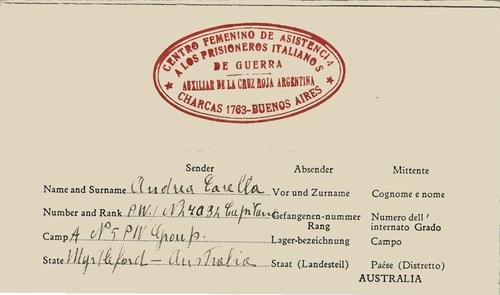 CENTRO FEMENINO DE ASISTENCIA
A LOS PRISIONEROS ITALIANOS
DE GUERRA
AUXILIAR DE LA CRUZ ROJA ARGENTINA
★ CHARCAS 1763-BUENOS AIRES ★
Sender Absender Mittente
Name and Surname Andrea Carella Vor und Zuname Cognome e nome
Number and Rank P.W.I Nº Capitano Gefangenen-nummer Numero dell'
Rang internato Grado
Camp A Nº5 PW Group. Lager-bezeichnung Campo
State Myrtleford - Australia Staat (Landesteil) Paése (Distretto)
AUSTRALIA